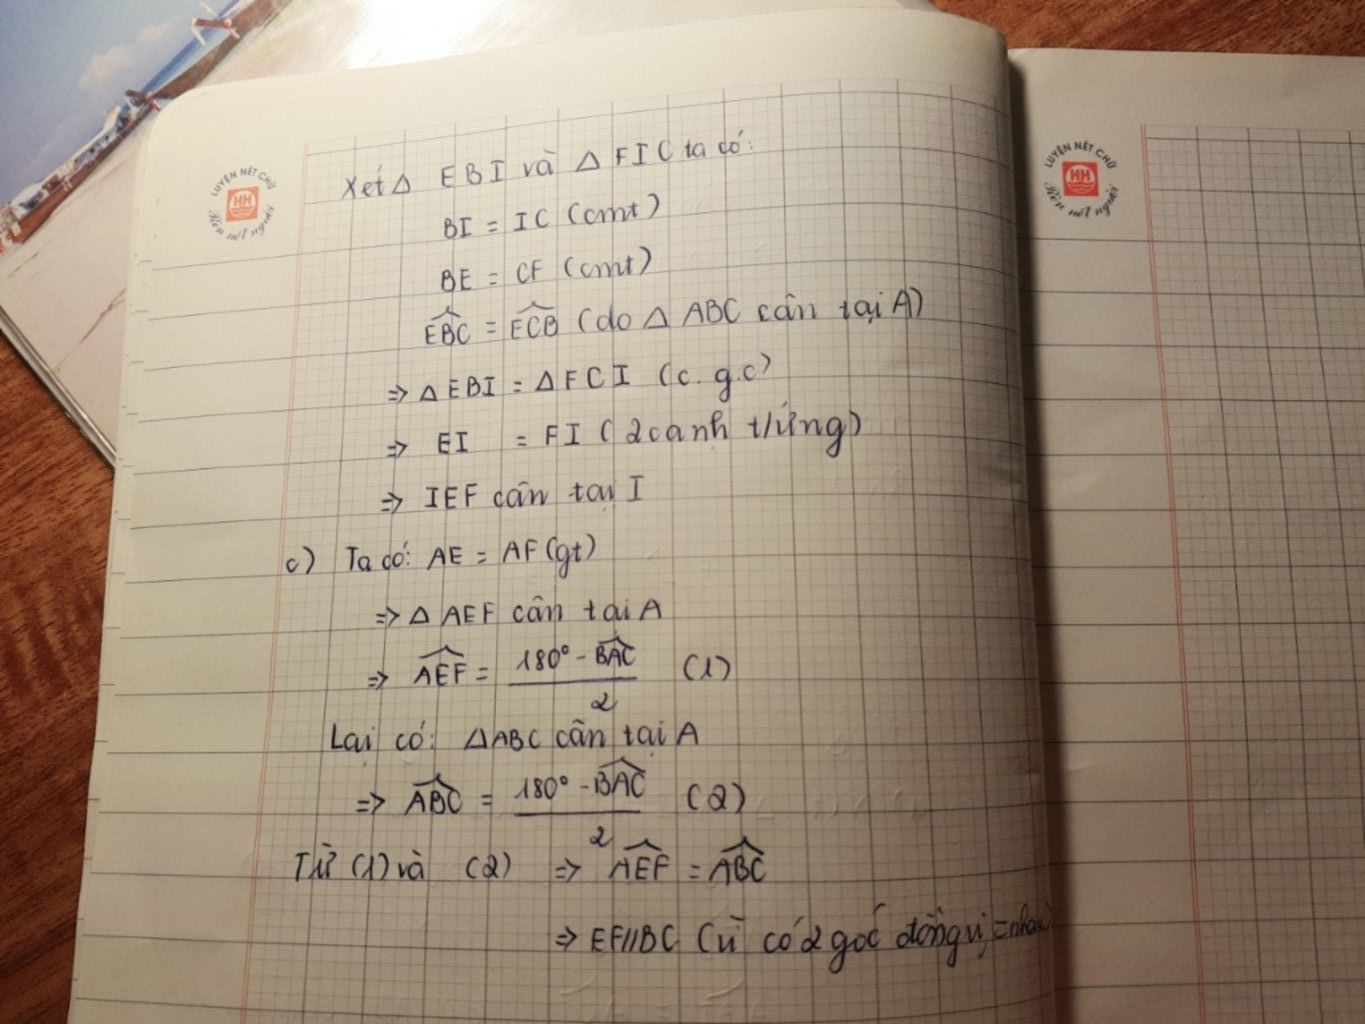 LUYỆN NÉT CHỮ
HH
Rèn nết người
LUYỆN NÉT CHỮ
HH
Rèn nết người
Xét Δ EBI và Δ FIC ta có:
BI = IC (cmt)
BE = CF (cmt)
$\widehat{EBC}$ = $\widehat{ECB}$ (do Δ ABC cân tại A)
=> Δ EBI = Δ FCI (c.g.c)
=> EI = FI (2 cạnh t/ứng)
=> IEF cân tại I
c) Ta có: AE = AF (gt)
=> Δ AEF cân tại A
=> $\widehat{AEF}$ = $\frac{180° - \widehat{BAC}}{2}$ (1)
Lại có: ΔABC cân tại A
=> $\widehat{ABC}$ = $\frac{180° - \widehat{BAC}}{2}$ (2)
Từ (1) và (2) => $\widehat{AEF}$ = $\widehat{ABC}$
=> EF//BC (vì có 2 góc đồng vị = nhau)